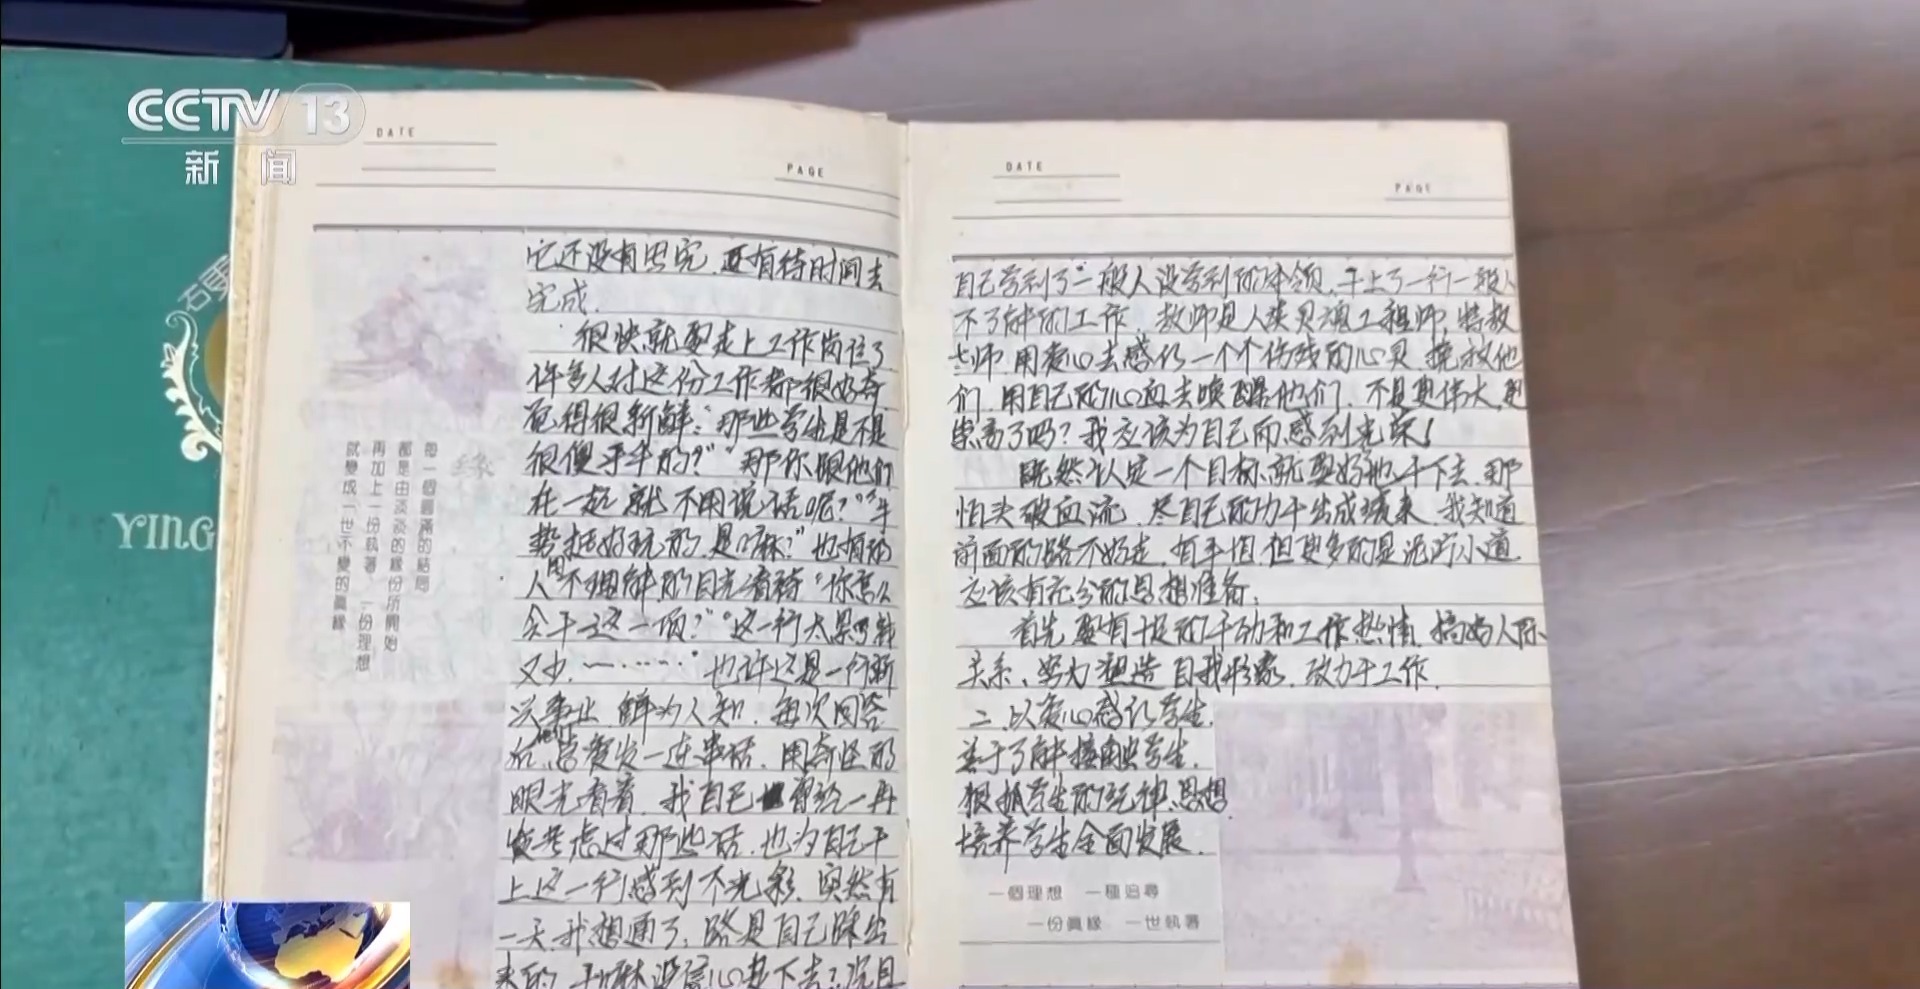 CCTV 13
新闻
YING
DATE
PAGE
它还没有思完.还有待时间去
完成.
很快就要走上工作岗位了
许多人对这份工作都很好奇
觉得很新鲜:“那些学生是不是
很傻乎乎的?”“那你跟他们
在一起就不用说话呢?”“手
势挺好玩的,是嘛?”也有的
人用不理解的目光看待“你怎么
会干这一项?”“这一行太累了钱
又少.……”也许这是一个新
兴事业,鲜为人知.每次回答
后他们总爱发一连串话.用奇怪的
眼光看着.我自己曾经一再
考虑过那些话.也为自己干
上这一行感到不光彩.突然有
一天.我想通了,路是自己踩出
来的,干嘛没信心走下去?况且
緣
每一個圓滿的結局
都是由淡淡的緣份所開始
再加上一份執著 一份理想
就變成一世不變的真緣
DATE
PAGE
自己学到了一般人没学到的本领.干上了一行一般人
不了解的工作.教师是人类灵魂工程师,特教
老师用爱心去感化一个个伤残的心灵.挽救他
们.用自己的心血去唤醒他们.不是更伟大,更
崇高了吗?我应该为自己而感到光荣!
既然认定一个目标,就要好好地干下去.那
怕头破血流.尽自己的力干出成绩来.我知道
前面的路不好走.有平坦.但更多的是泥泞小道.
应该有充分的思想准备.
首先要有十足的干劲和工作热情,搞好人际
关系、努力塑造自我形象.致力于工作.
二.以爱心感化学生.
善于了解接触学生.
狠抓学生的精神、思想
培养学生全面发展.
一個理想 一種追尋
一份真緣 一世執著